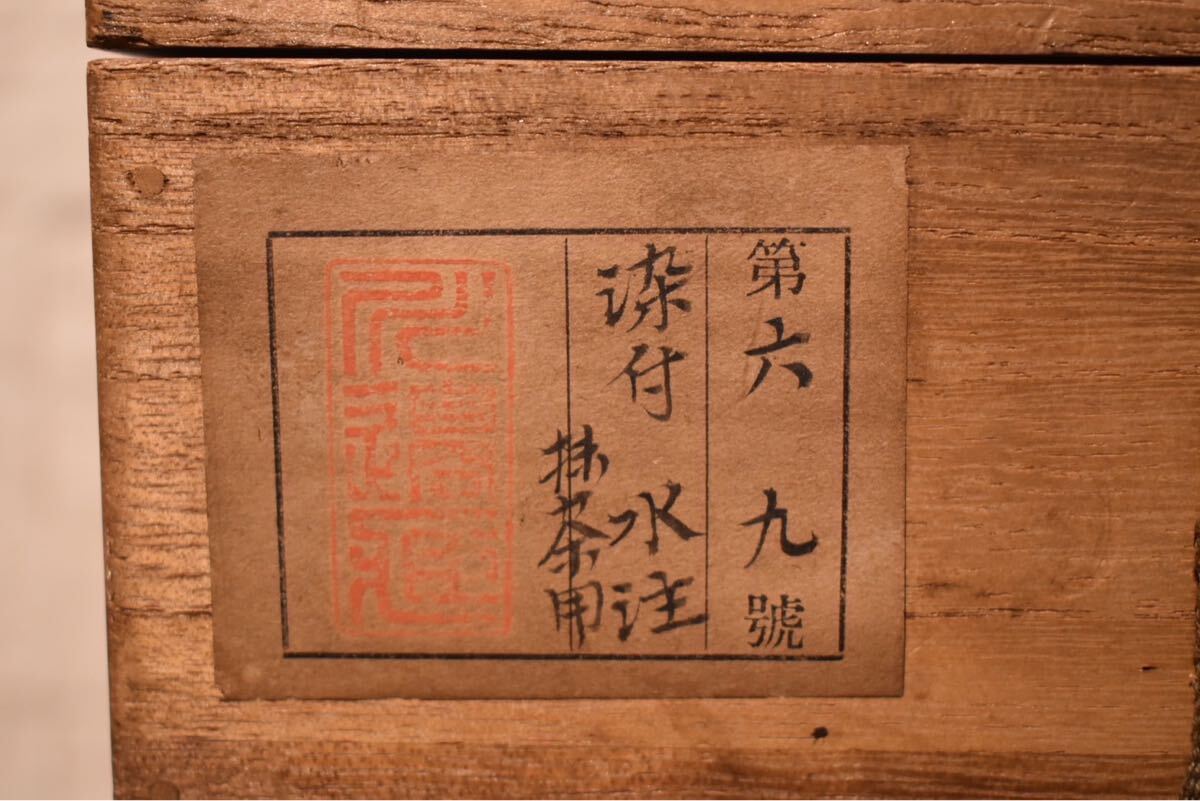 第六九號
染付 水注
抹茶用